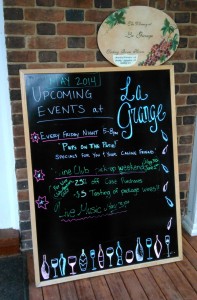 The Winery at
La Grange
MAY 2014
UPCOMING
EVENTS at
La
Grange
EVERY FRIDAY NIGHT 5-8pm
"PUPS ON THE PATIO"
SPECIALS FOR YOU & YOUR CANINE FRIENDS!
Wine Club pick-up Weekend
25% off Case Purchases
Tasting of package wines!
Live Music